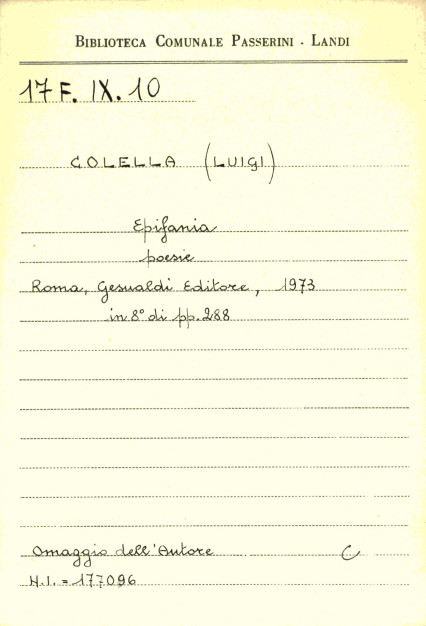 BIBLIOTECA COMUNALE PASSERINI - LANDI
17 F. IX. 10
COLELLA (LUIGI)
Epifania
poesie
Roma, Gesualdi Editore, 1973
in 8° di pp. 288
Omaggio dell'Autore C
N.I. = 177096